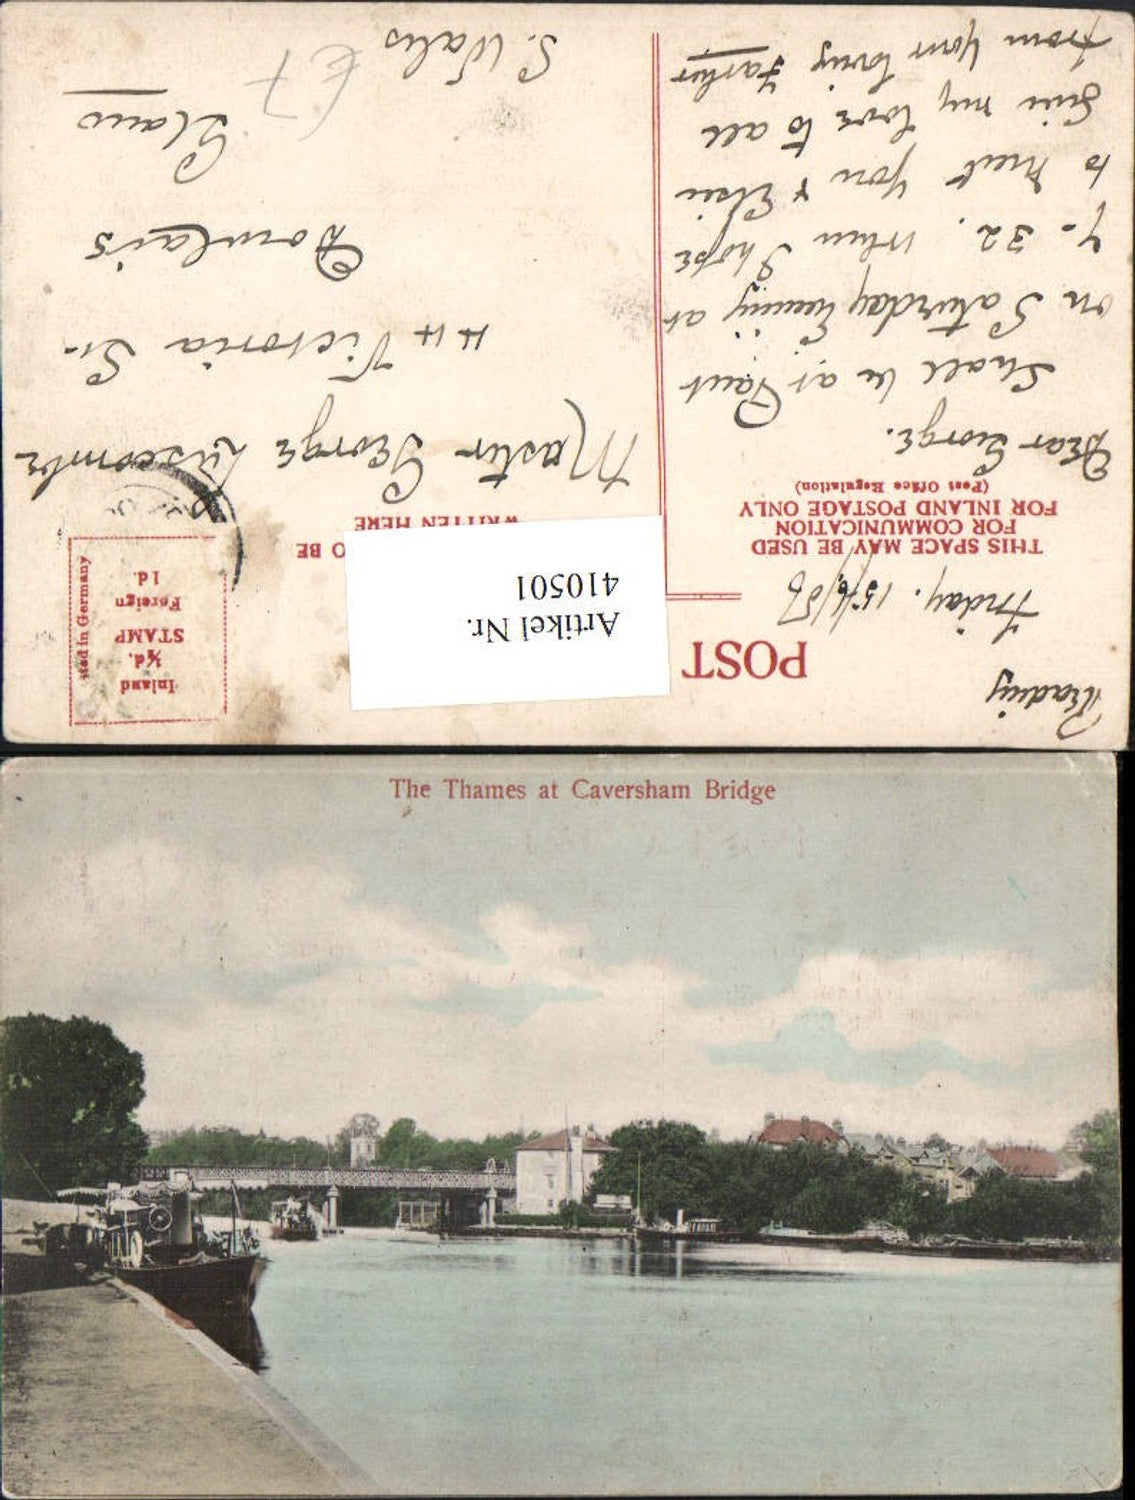 Reading
Friday. 15/6/06
POST
THIS SPACE MAY BE USED
FOR COMMUNICATION
FOR INLAND POSTAGE ONLY
(Post Office Regulation)
Dear George.
Shall be at Pant
on Saturday Evening at
7-32. When I hope
to meet you & Elsie
Give my love to all
from your loving Farther
Artikel Nr.
410501
O BE
WRITTEN HERE
Inland
½d.
STAMP
Foreign
1d.
ted in Germany
Master George Luscombe
44 Victoria St-
Dowlais
Glam
S. Wales
£7
The Thames at Caversham Bridge